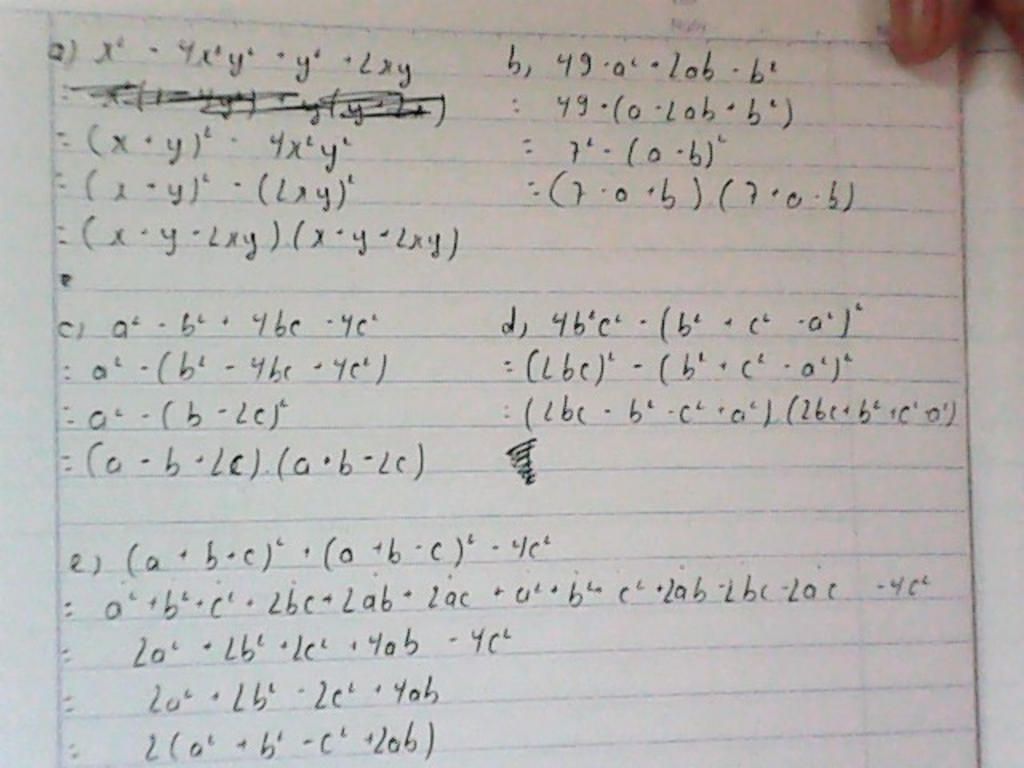 a) x² - 4x²y² + y² + 2xy
= (x + y)² - 4x²y²
= (x + y)² - (2xy)²
= (x + y - 2xy)(x + y + 2xy)
b, 49 - a² + 2ab - b²
= 49 - (a - 2ab + b²)
= 7² - (a - b)²
= (7 - a + b)(7 + a - b)
c) a² - b² + 4bc - 4c²
= a² - (b² - 4bc + 4c²)
= a² - (b - 2c)²
= (a - b + 2c).(a + b - 2c)
d, 4b²c² - (b² + c² - a²)²
= (2bc)² - (b² + c² - a²)²
= (2bc - b² - c² + a²).(2bc + b² + c² - a²)
e) (a + b + c)² + (a + b - c)² - 4c²
= a² + b² + c² + 2bc + 2ab + 2ac + a² + b² + c² + 2ab - 2bc - 2ac - 4c²
= 2a² + 2b² + 2c² + 4ab - 4c²
= 2a² + 2b² - 2c² + 4ab
= 2(a² + b² - c² + 2ab)